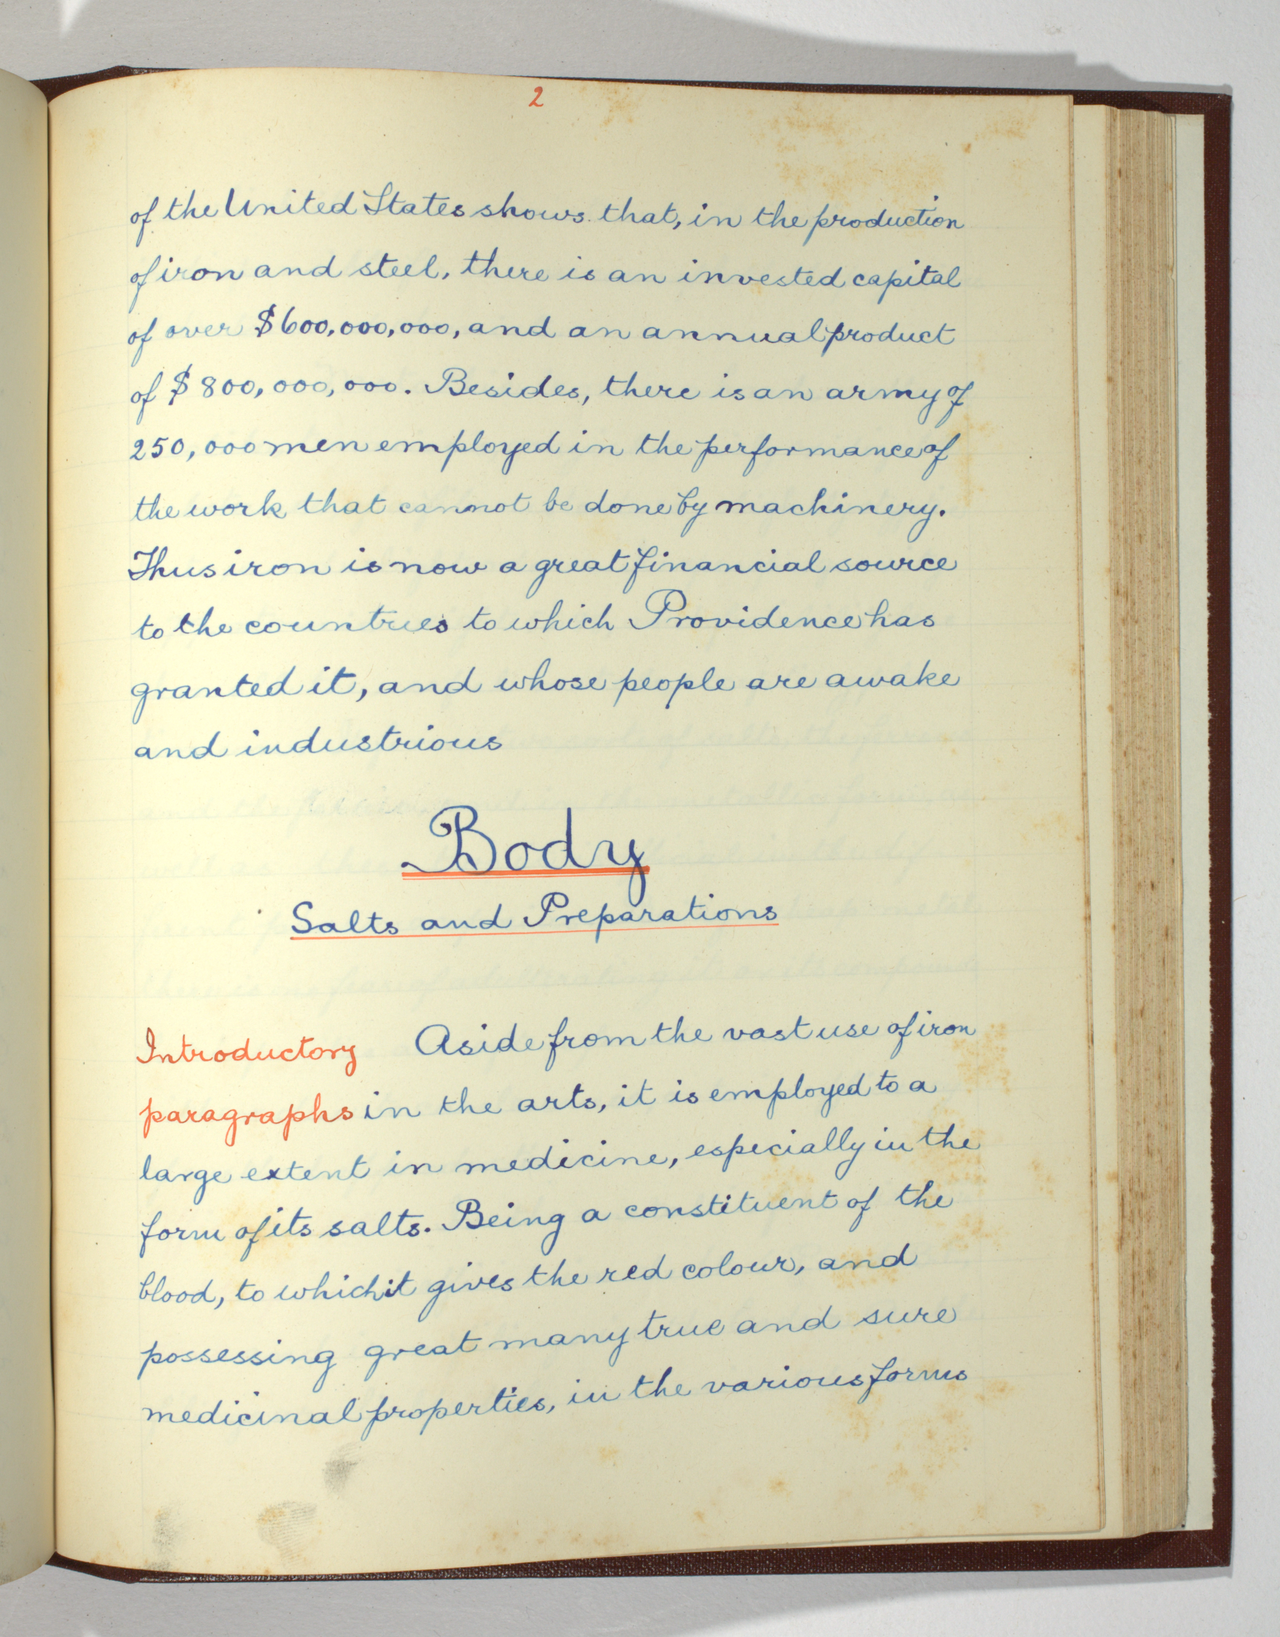 2
of the United States shows that, in the production
of iron and steel, there is an invested capital
of over $600,000,000, and an annual product
of $800,000,000. Besides, there is an army of
250,000 men employed in the performance of
the work that cannot be done by machinery.
Thus iron is now a great financial source
to the countries to which Providence has
granted it, and whose people are awake
and industrious
Body
Salts and Preparations
Introductory Aside from the vast use of iron
paragraphs in the arts, it is employed to a
large extent in medicine, especially in the
form of its salts. Being a constituent of the
blood, to which it gives the red colour, and
possessing great many true and sure
medicinal properties, in the various forms